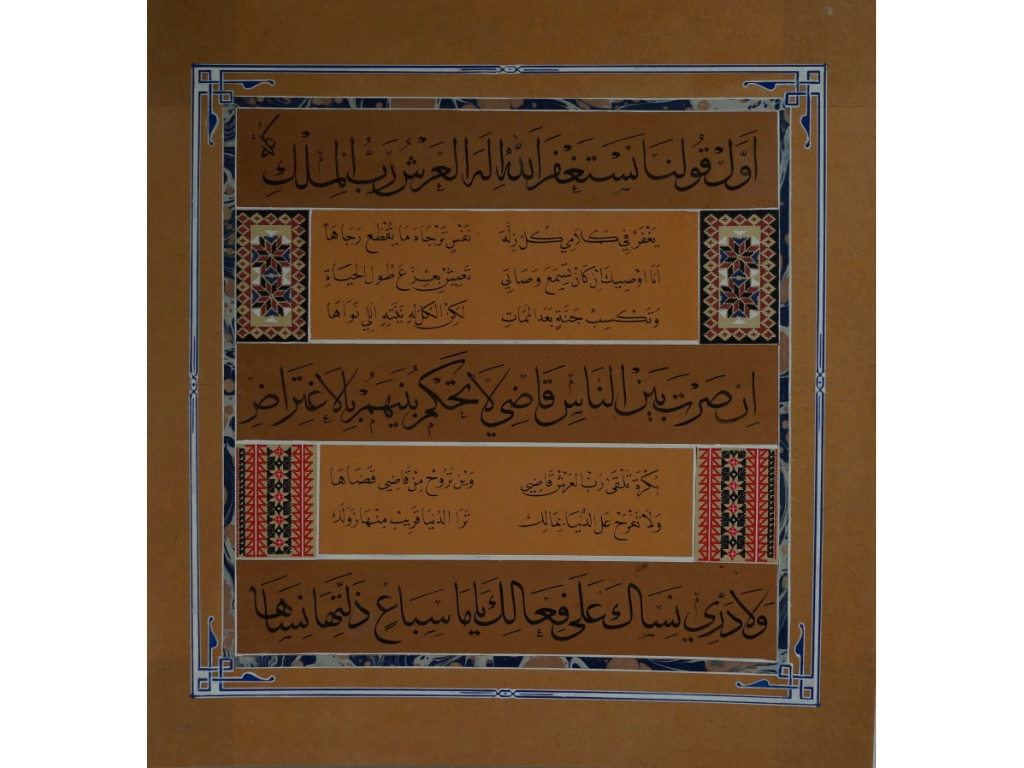 اَوَّلْ قُولْنَا نَسْتَغْفَرَ اللهْ اِلَهَ العَرْشْ رَبِّ المِلْكِ كلّه
يَغْفَرْ فِي كَلَامِي كُلْ زِلَّة نَفْسٍ تَرْجَاهْ مَا يِقْطَعْ رَجَاهَا
اَنَا اوْصِيكْ اِنْ كَانْ تِسْمَعْ وَصَاتِي تَعِيشْ بْعِزْ عَ طُولْ الحَيَاةِ
وَتَكْسِبْ جَنَّةٍ بَعْدَ المَمَاتِ لَكِنْ الكُلْ لِهِ نِيّتِهِ اِلِّي نَوَاهَا
اِنْ صَرْتْ بَيْنَ النَاسِ قَاضِي لَا تَحْكُمْ بْينَهُمْ بِالاِعْتِرَاضِ
بُكْرَة تَلْقَى رَبْ العَرْشْ قَاضِي وَيْن تْرُوحْ مِنْ قَاضِي قَضَاهَا
وَلَا تَفْرَحْ عَلَ الدُّنْيَا بِمَالِكْ تَرَا الدُنْيَا قَرِيبْ مِنْهَا زَوَالَكْ
وَلَا دَرِّي نِسَاكْ عَلَى فِعَالِكْ يَامَا سِبَاعٍ ذَلَّتْهَا نِسَاهَا